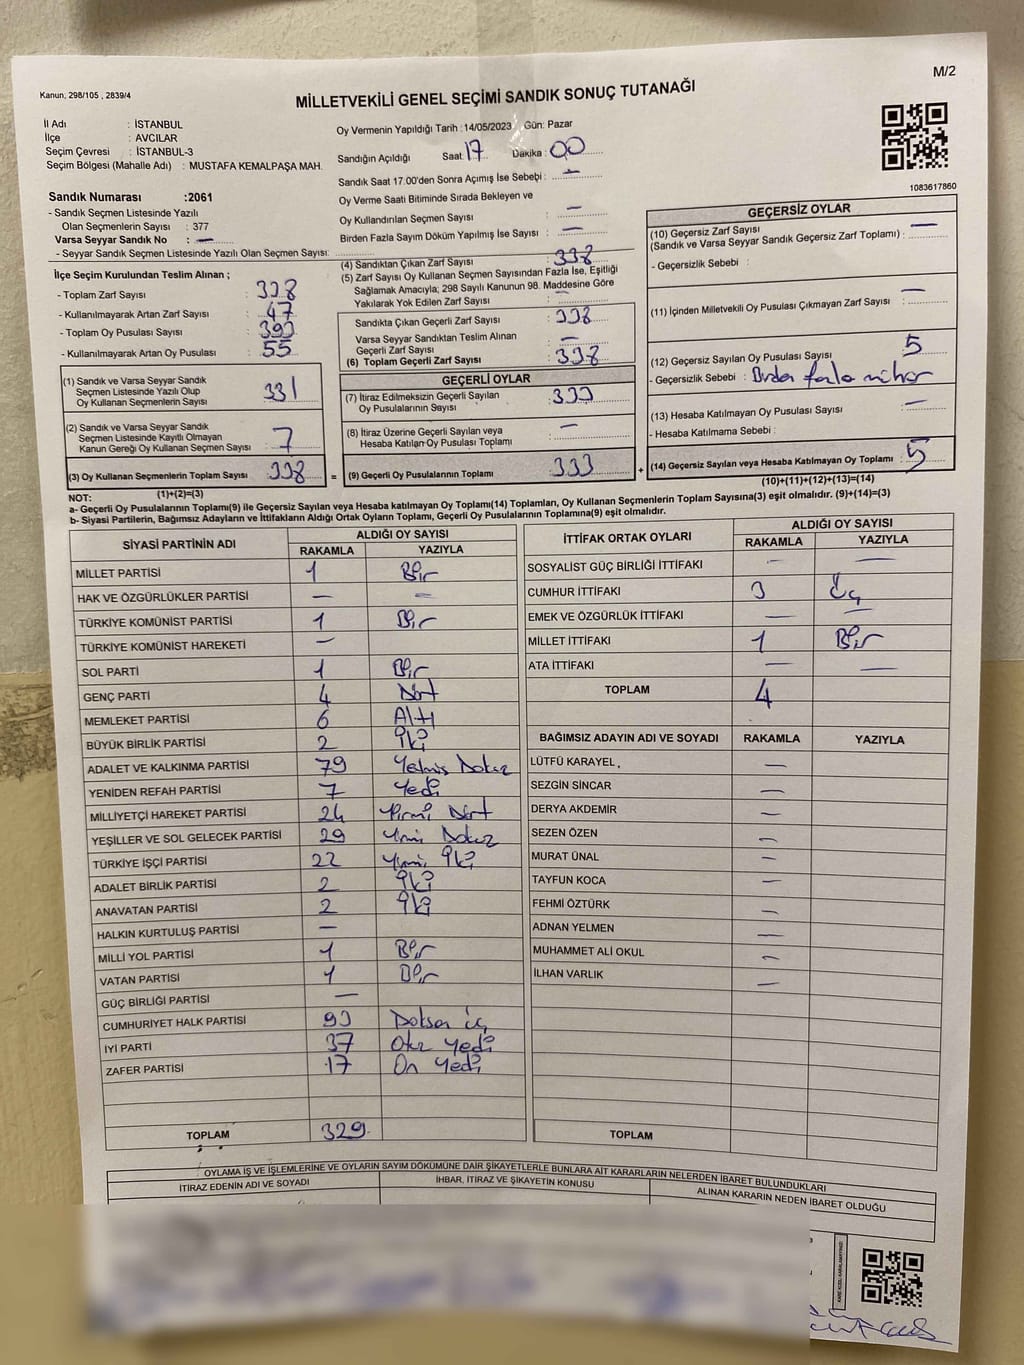 M/2
Kanun, 298/105 , 2839/4
MİLLETVEKİLİ GENEL SEÇİMİ SANDIK SONUÇ TUTANAĞI
İl Adı : İSTANBUL
İlçe : AVCILAR
Seçim Çevresi : İSTANBUL-3
Seçim Bölgesi (Mahalle Adı) : MUSTAFA KEMALPAŞA MAH.
Sandık Numarası :2061
- Sandık Seçmen Listesinde Yazılı
Olan Seçmenlerin Sayısı : 377
Varsa Seyyar Sandık No : —
- Seyyar Sandık Seçmen Listesinde Yazılı Olan Seçmen Sayısı:
Oy Vermenin Yapıldığı Tarih :14/05/2023 Gün: Pazar
Sandığın Açıldığı Saat 17 Dakika : 00
Sandık Saat 17.00'den Sonra Açımış İse Sebebi : —
Oy Verme Saati Bitiminde Sırada Bekleyen ve
Oy Kullandırılan Seçmen Sayısı : —
Birden Fazla Sayım Döküm Yapılmış İse Sayısı : —
1083617860
İlçe Seçim Kurulundan Teslim Alınan ;
- Toplam Zarf Sayısı :
- Kullanılmayarak Artan Zarf Sayısı : 47
- Toplam Oy Pusulası Sayısı : 393
- Kullanılmayarak Artan Oy Pusulası : 55
(1) Sandık ve Varsa Seyyar Sandık
Seçmen Listesinde Yazılı Olup
Oy Kullanan Seçmenlerin Sayısı 331
(2) Sandık ve Varsa Seyyar Sandık
Seçmen Listesinde Kayıtlı Olmayan
Kanun Gereği Oy Kullanan Seçmen Sayısı 7
(3) Oy Kullanan Seçmenlerin Toplam Sayısı 338
(4) Sandıktan Çıkan Zarf Sayısı : 338
(5) Zarf Sayısı Oy Kullanan Seçmen Sayısından Fazla İse, Eşitliği
Sağlamak Amacıyla; 298 Sayılı Kanunun 98. Maddesine Göre
Yakılarak Yok Edilen Zarf Sayısı : —
Sandıkta Çıkan Geçerli Zarf Sayısı : 338
Varsa Seyyar Sandıktan Teslim Alınan
Geçerli Zarf Sayısı : —
(6) Toplam Geçerli Zarf Sayısı : 338
GEÇERLİ OYLAR
(7) İtiraz Edilmeksizin Geçerli Sayılan
Oy Pusulalarının Sayısı : 333
(8) İtiraz Üzerine Geçerli Sayılan veya
Hesaba Katılan Oy Pusulası Toplamı : —
= (9) Geçerli Oy Pusulalarının Toplamı 333 +
GEÇERSİZ OYLAR
(10) Geçersiz Zarf Sayısı
(Sandık ve Varsa Seyyar Sandık Geçersiz Zarf Toplamı) : —
- Geçersizlik Sebebi :
(11) İçinden Milletvekili Oy Pusulası Çıkmayan Zarf Sayısı —
(12) Geçersiz Sayılan Oy Pusulası Sayısı 5
- Geçersizlik Sebebi : Birden fazla mühür
(13) Hesaba Katılmayan Oy Pusulası Sayısı —
- Hesaba Katılmama Sebebi :
(14) Geçersiz Sayılan veya Hesaba Katılmayan Oy Toplamı : 5
(1)+(2)=(3)
(10)+(11)+(12)+(13)=(14)
NOT:
a- Geçerli Oy Pusulalarının Toplamı(9) ile Geçersiz Sayılan veya Hesaba katılmayan Oy Toplamı(14) Toplamları, Oy Kullanan Seçmenlerin Toplam Sayısına(3) eşit olmalıdır. (9)+(14)=(3)
b- Siyasi Partilerin, Bağımsız Adayların ve İttifakların Aldığı Ortak Oyların Toplamı, Geçerli Oy Pusulalarının Toplamına(9) eşit olmalıdır.
SİYASİ PARTİNİN ADI ALDIĞI OY SAYISI
RAKAMLA YAZIYLA
MİLLET PARTİSİ 1 Bir
HAK VE ÖZGÜRLÜKLER PARTİSİ — —
TÜRKİYE KOMÜNİST PARTİSİ 1 Bir
TÜRKİYE KOMÜNİST HAREKETİ —
SOL PARTİ 1 Bir
GENÇ PARTİ 4 Dört
MEMLEKET PARTİSİ 6 Altı
BÜYÜK BİRLİK PARTİSİ 2 İki
ADALET VE KALKINMA PARTİSİ 79 Yetmiş Dokuz
YENİDEN REFAH PARTİSİ 7 Yedi
MİLLİYETÇİ HAREKET PARTİSİ 24 Yirmi Dört
YEŞİLLER VE SOL GELECEK PARTİSİ 29 Yirmi Dokuz
TÜRKİYE İŞÇİ PARTİSİ 22 Yirmi İki
ADALET BİRLİK PARTİSİ 2 İki
ANAVATAN PARTİSİ 2 İki
HALKIN KURTULUŞ PARTİSİ —
MİLLİ YOL PARTİSİ 1 Bir
VATAN PARTİSİ 1 Bir
GÜÇ BİRLİĞİ PARTİSİ —
CUMHURİYET HALK PARTİSİ 93 Doksan üç
İYİ PARTİ 37 Otuz Yedi
ZAFER PARTİSİ 17 On Yedi
TOPLAM 329
İTTİFAK ORTAK OYLARI ALDIĞI OY SAYISI
RAKAMLA YAZIYLA
SOSYALİST GÜÇ BİRLİĞİ İTTİFAKI — —
CUMHUR İTTİFAKI 3 Üç
EMEK VE ÖZGÜRLÜK İTTİFAKI — —
MİLLET İTTİFAKI 1 Bir
ATA İTTİFAKI — —
TOPLAM 4
BAĞIMSIZ ADAYIN ADI VE SOYADI RAKAMLA YAZIYLA
LÜTFÜ KARAYEL —
SEZGİN SİNCAR —
DERYA AKDEMİR —
SEZEN ÖZEN —
MURAT ÜNAL —
TAYFUN KOCA —
FEHMİ ÖZTÜRK —
ADNAN YELMEN —
MUHAMMET ALİ OKUL —
İLHAN VARLIK —
TOPLAM
OYLAMA İŞ VE İŞLEMLERİNE VE OYLARIN SAYIM DÖKÜMÜNE DAİR ŞİKAYETLERLE BUNLARA AİT KARARLARIN NELERDEN İBARET BULUNDUKLARI
İTİRAZ EDENİN ADI VE SOYADI İHBAR, İTİRAZ VE ŞİKAYETİN KONUSU ALINAN KARARIN NEDEN İBARET OLDUĞU